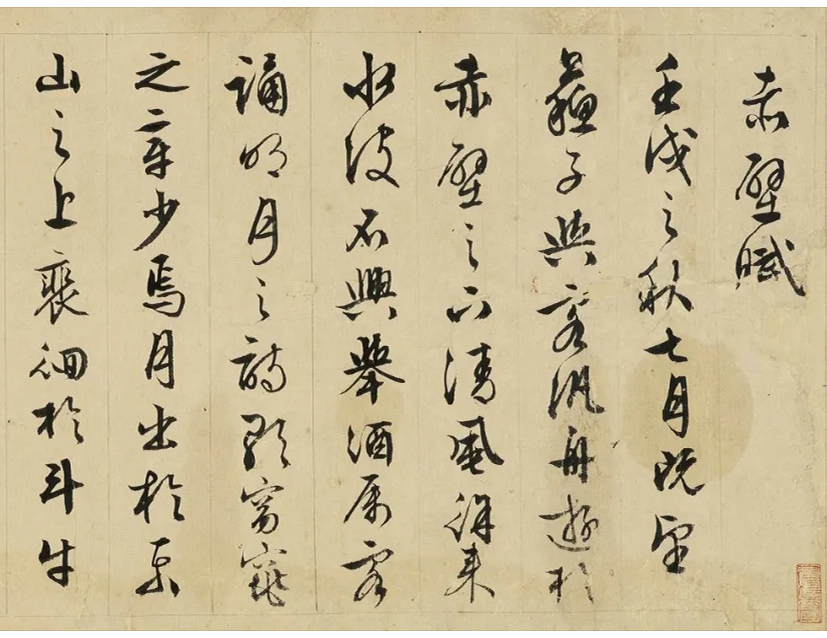 赤壁賦
壬戌之秋七月既望
蘇子與客汎舟遊於
赤壁之下清風徐來
水波不興舉酒属客
誦明月之詩歌窈窕
之章少焉月出於東
山之上裵徊於斗牛